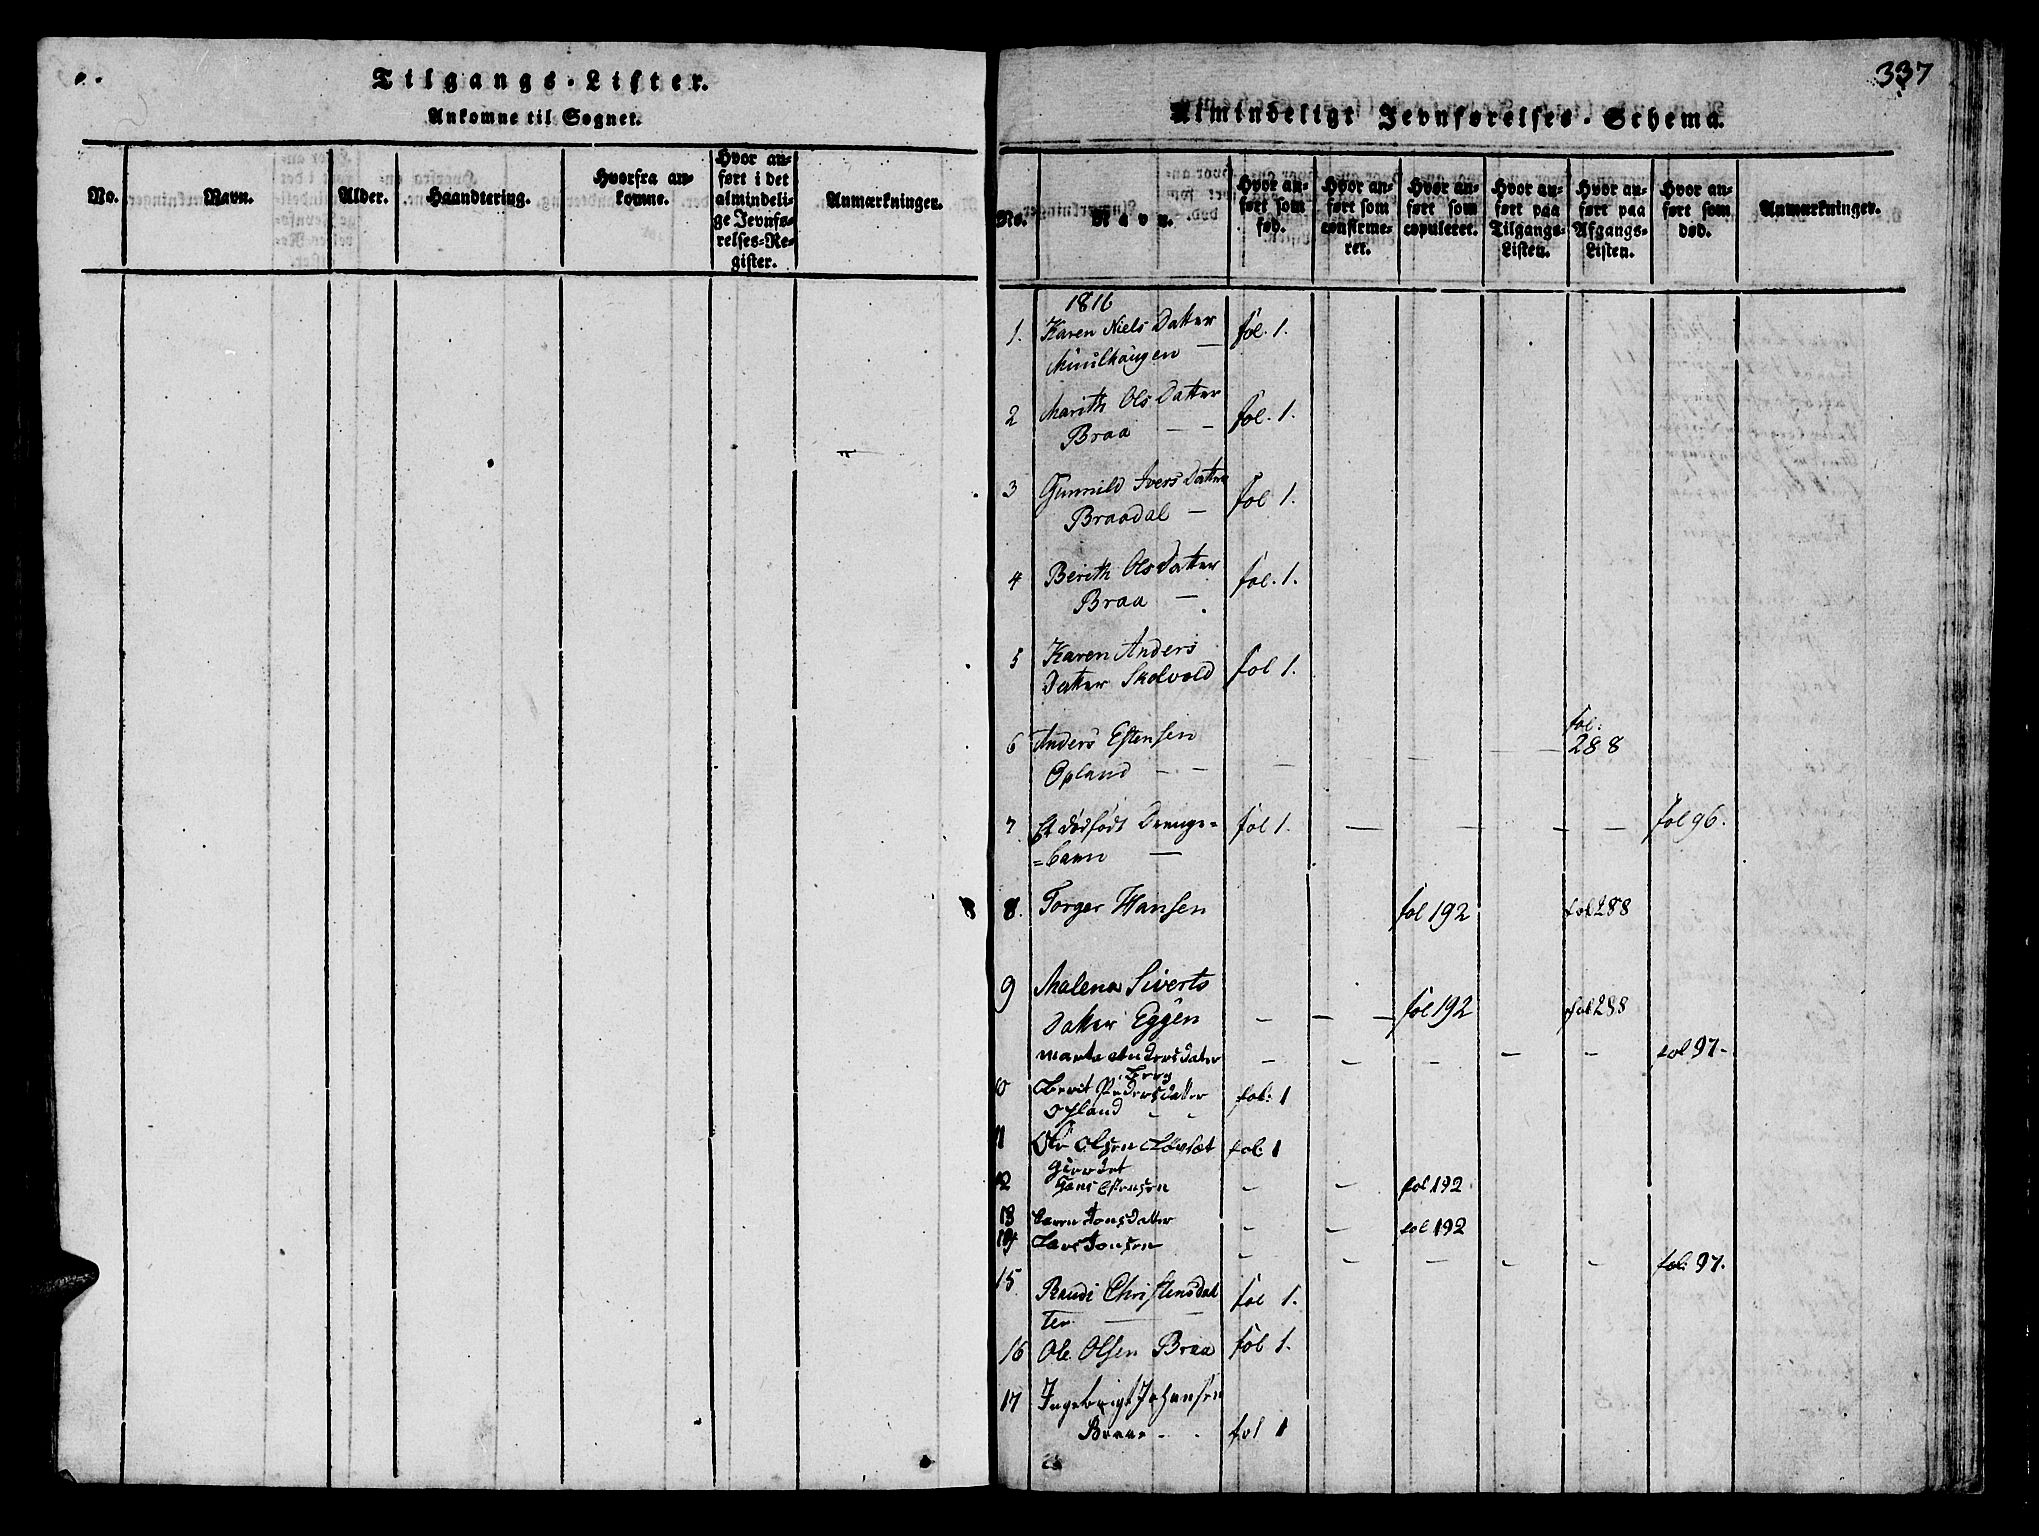 Tilgangs-Lister.
Ankomne til Sognet.
No.
Navn.
Alder.
Haandtering.
Hvorfra an-
komne.
Hvor an-
ført i det
almindeli-
ge Jevnfø-
relses-Re-
gister.
Anmærkninger.
337
Almindeligt Jevnførelses-Schema.
No.
Navn.
Hvor an-
ført som
fød.
Hvor an-
ført som
confirme-
ret.
Hvor an-
ført som
copuleret.
Hvor an-
ført paa
Tilgangs-
Listen.
Hvor an-
ført paa
Afgangs-
Listen.
Hvor an-
ført som
død.
Anmærkninger.
1816
1. Karen Niels Datter fol. 1.
2 Marith Ols Datter fol. 1.
Braa — —
3 Gunnild Ivers Datter fol 1.
Braadal —
4 Berith Ols Datter fol. 1.
Braa —
5 Karen Anders
Datter Skolvold fol 1.
fol:
6 Anders Estensen — — — — 288
Opland — —
7 Et dødfødt Drenge= fol 1. — — — — fol 96.
=barn —
8. Torger Hansen fol 192 fol 288
9 Malena Siverts
Datter Eggen — — — fol 192 fol 288
Marta Andersdater — — — — — fol 97-
Berg
10 Berit Pedersdatter fol: 1
Opland — —
11 Ole Olsen fol: 1
12 Hans Estensen — — fol 192
13 Caren Jonsdatter — — fol 192
14 Lars Jonsen — — — — — fol: 97.
15 Randi Christensdat fol 1.
ter — —
16 Ole Olsen Braa fol 1.
17 Ingebrigt Johansen
Braa - . fol 1